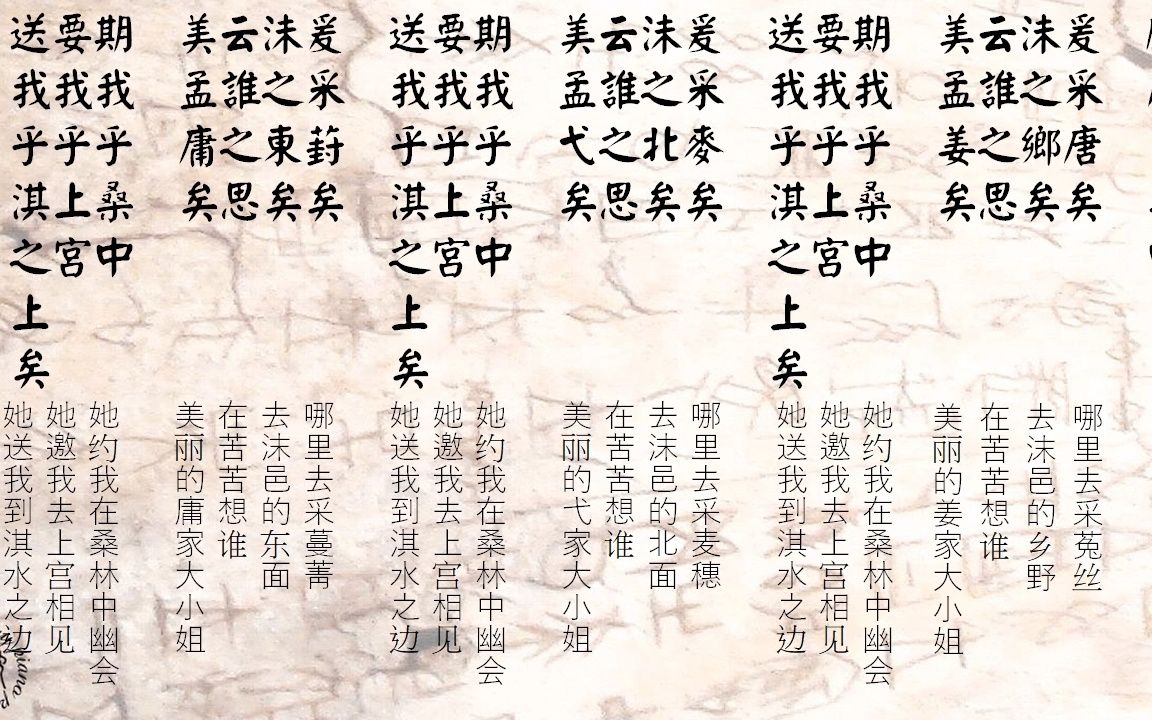 爰采唐矣
沬之鄉矣
云誰之思
美孟姜矣
期我乎桑中
要我乎上宮
送我乎淇之上矣
爰采麥矣
沬之北矣
云誰之思
美孟弋矣
期我乎桑中
要我乎上宮
送我乎淇之上矣
爰采葑矣
沬之東矣
云誰之思
美孟庸矣
期我乎桑中
要我乎上宮
送我乎淇之上矣
哪里去采菟丝
去沬邑的乡野
在苦苦想谁
美丽的姜家大小姐
她约我在桑林中幽会
她邀我去上宫相见
她送我到淇水之边
哪里去采麦穗
去沬邑的北面
在苦苦想谁
美丽的弋家大小姐
她约我在桑林中幽会
她邀我去上宫相见
她送我到淇水之边
哪里去采蔓菁
去沬邑的东面
在苦苦想谁
美丽的庸家大小姐
她约我在桑林中幽会
她邀我去上宫相见
她送我到淇水之边
piano